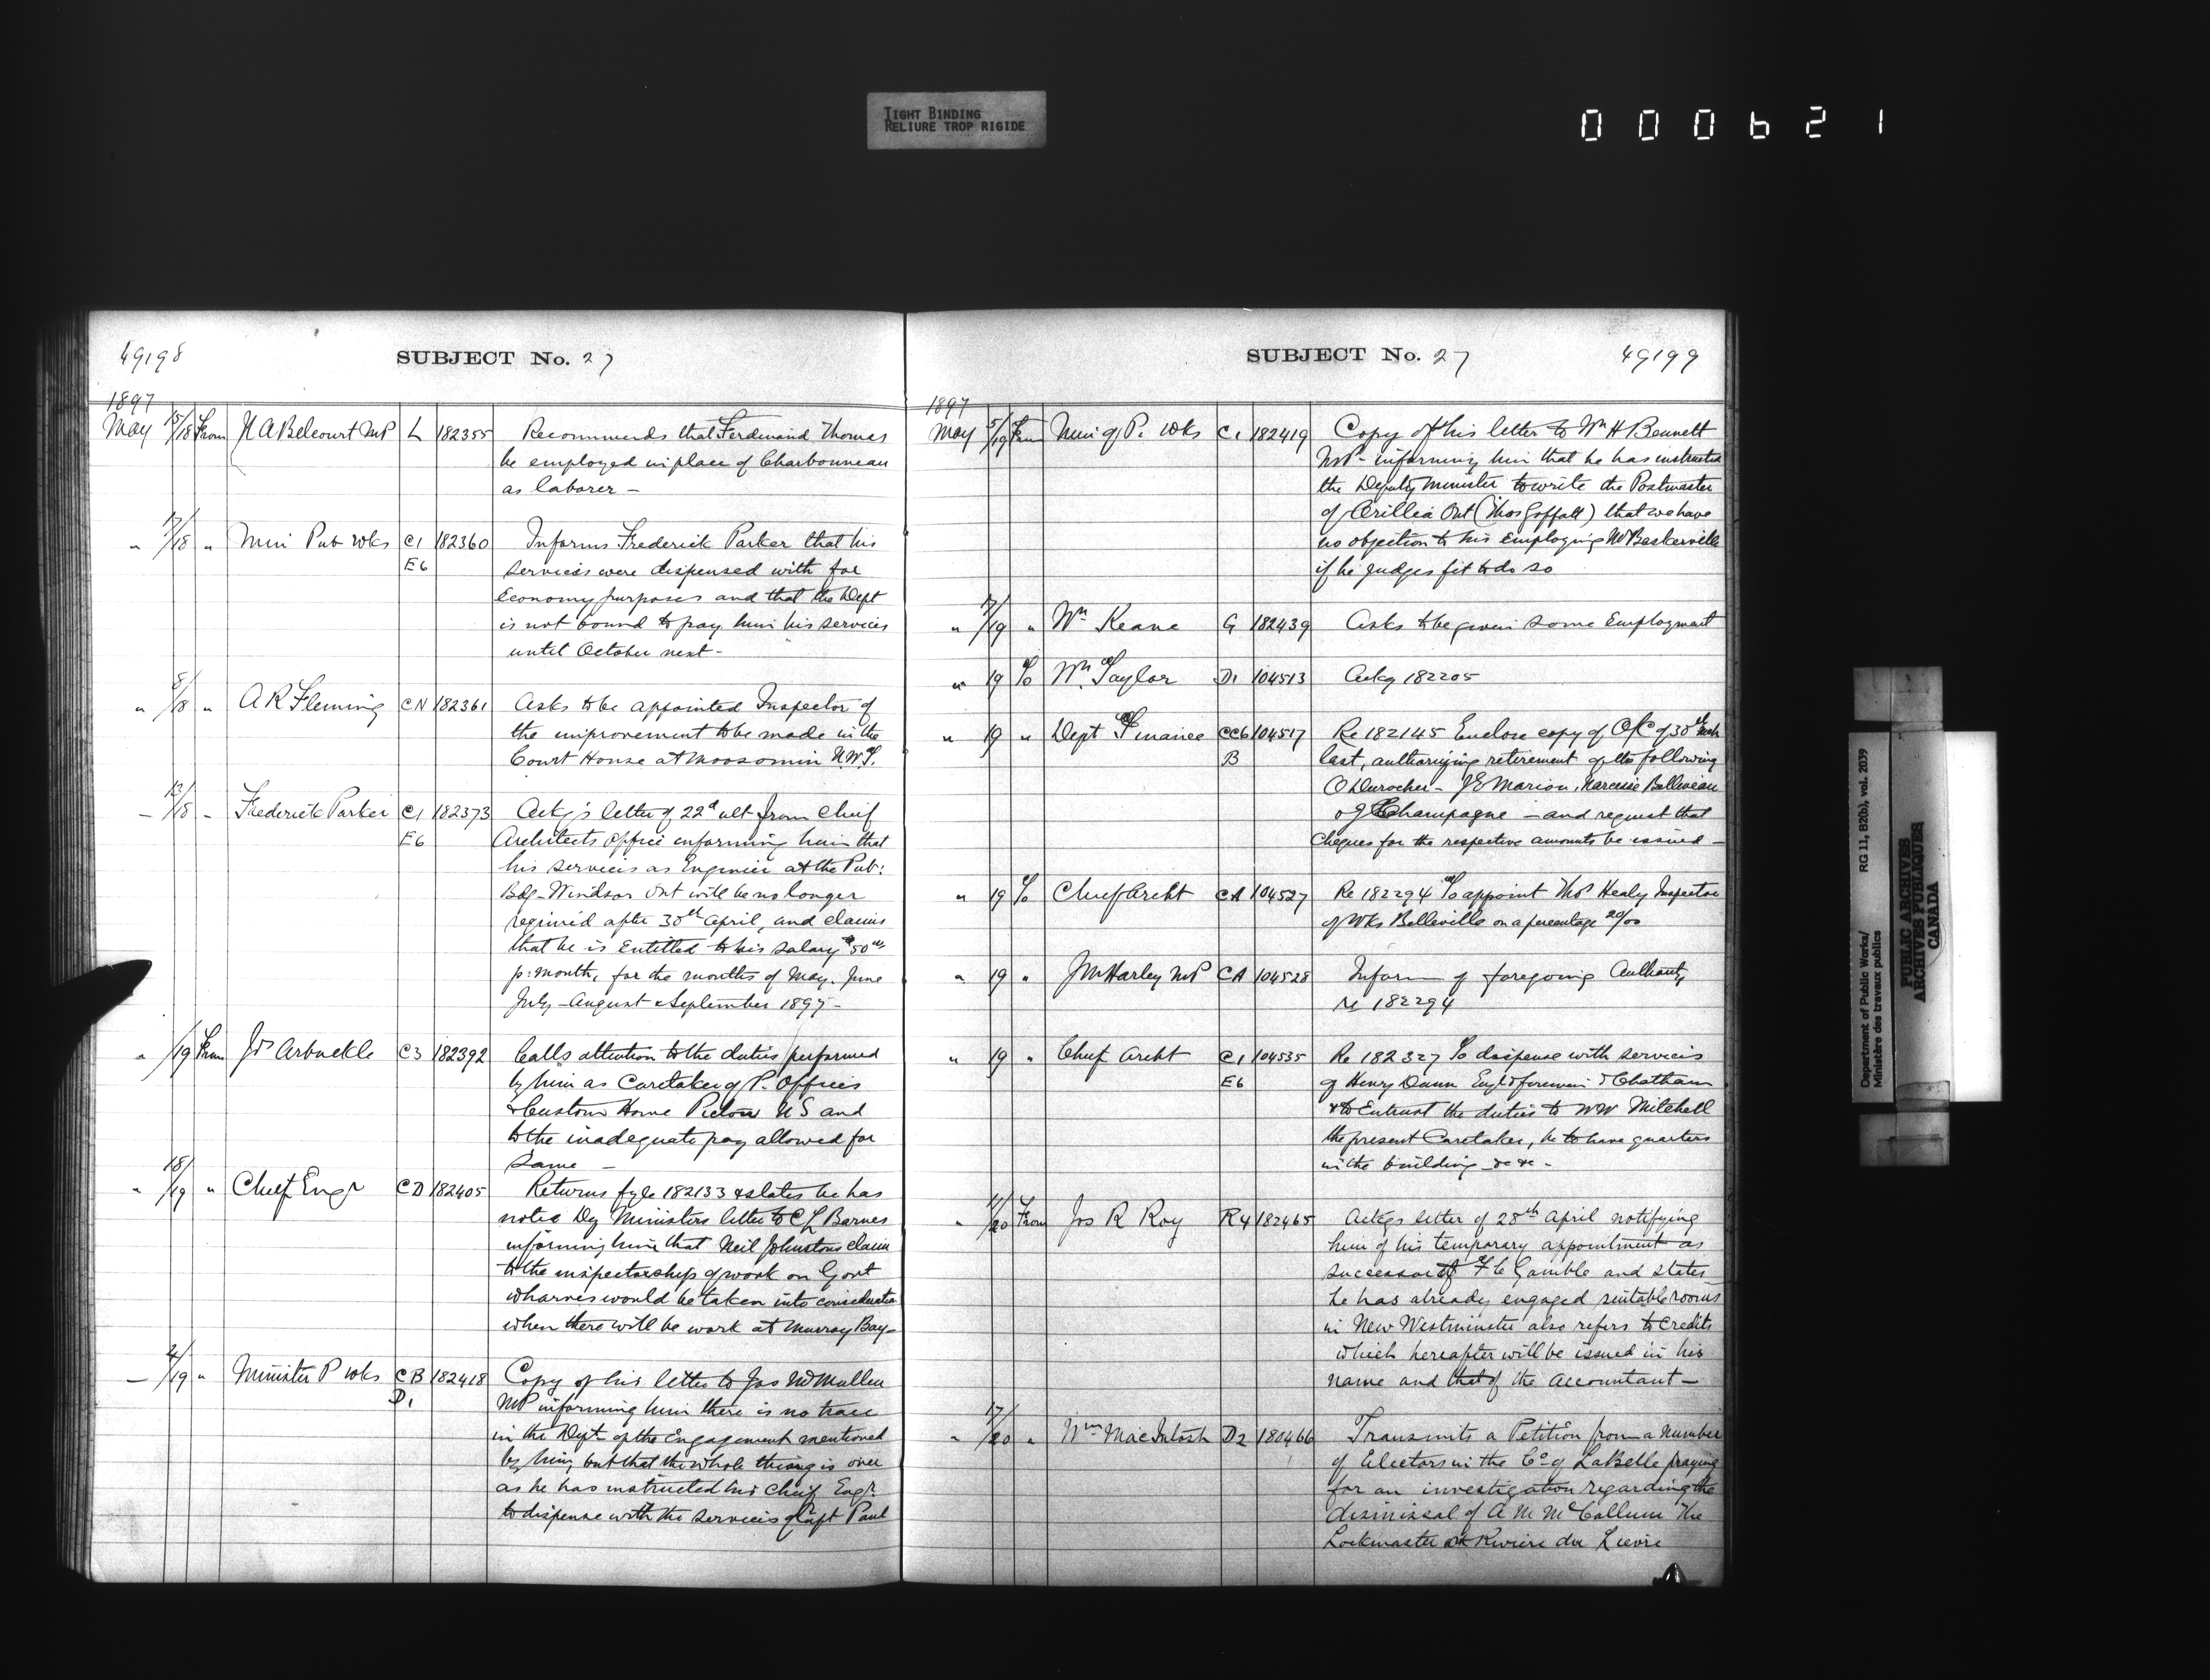 TIGHT BINDING
RELIURE TROP RIGIDE
000621
49198
SUBJECT No. 27
1897
May 15/18 From N A Belcourt MP L 182355 Recommends that Ferdinand Thomas
be employed in place of Charbonneau
as laborer -
" 17/18 " Min Pub Wks C1 182360 Informs Frederick Parker that his
E6 services were dispensed with for
Economy purposes and that the Dept
is not bound to pay him his services
until October next -
" 8/18 " A R Fleming CN 182361 Asks to be appointed Inspector of
the improvement to be made in the
Court House at Moosomin N.W.T.
- 13/18 - Frederick Parker C1 182373 Ackg's letter of 22d ult from Chief
E6 Architects Office informing him that
his services as Engineer at the Pub:
Bdg - Windsor Ont will be no longer
required after 30th April, and claims
that he is Entitled to his salary $50
p: month, for the months of May. June
July - August & September 1897 -
" /19 From Jas Arbuckle C3 182392 Calls attention to the duties performed
by him as Caretaker of P. Offices
& Custom House Pictou NS and
to the inadequate pay allowed for
Same -
" 18/19 " Chief Engr CD 182405 Returns fyle 182133 & states he has
noted Dy Ministers letter to C L Barnes
informing him that Neil Johnstons claim
to the inspectorship of work on Govt
wharves would be taken into consideration
when there will be work at Murray Bay -
- 4/19 " Minister P Wks CB 182418 Copy of his letter to Jas McMullen
D1 MP informing him there is no trace
in the Dept of the Engagement mentioned
by him, but that the whole thing is over
as he has instructed his Chief Engr.
to dispense with the services of Capt Paul
SUBJECT No. 27
49199
1897
May 5/19 From Min of P. Wks C1 182419 Copy of his letter to Wm H Bennett
MP - informing him that he has instructed
the Deputy Minister to write the Postmaster
of Orillia Ont (Thos Goffatt) that we have
no objection to his employing Baskerville
if he judges fit to do so
" 17/19 " Wm Keane G 182439 Asks to be given some Employment
" 19 To Wm Taylor D1 104513 Ackg 182205
" 19 " Dept of Finance CC6 104517 Re 182145 Enclose copy of O/C of 30th Mch
B last, authorizing retirement of the following
O Durocher - J E Marion, Narcisse Belliveau
of Champagne - and request that
Cheques for the respective amounts be issued -
" 19 To Chief Archt CA 104527 Re 182294 To appoint Healy Inspector
of Wks Belleville on a percentage
" 19 " J M Hurley MP CA 104528 Inform of foregoing Authority
re 182294
" 19 " Chief Archt C1 104535 Re 182327 To dispense with services
E6 of Henry Dunn Chatham
& to Entrust the duties to W W Mitchell
the present Caretaker, he to have quarters
in the building &c &c -
" 11/20 From Jos R Roy R4 182465 Ackgs letter of 28th April notifying
him of his temporary appointment as
successor of F C Gamble and states
he has already engaged suitable rooms
in New Westminster also refers to credits
which hereafter will be issued in his
name and that of the Accountant -
" 17/20 " Wm MacIntosh D2 180466 Transmits a Petition from a Number
of Electors in the Co of LaBelle praying
for an investigation regarding the
dismissal of A M McCallum The
Lockmaster at Riviere du Lievre
Department of Public Works/ RG 11, B2(b), vol. 2039
Ministère des travaux publics
PUBLIC ARCHIVES
ARCHIVES PUBLIQUES
CANADA